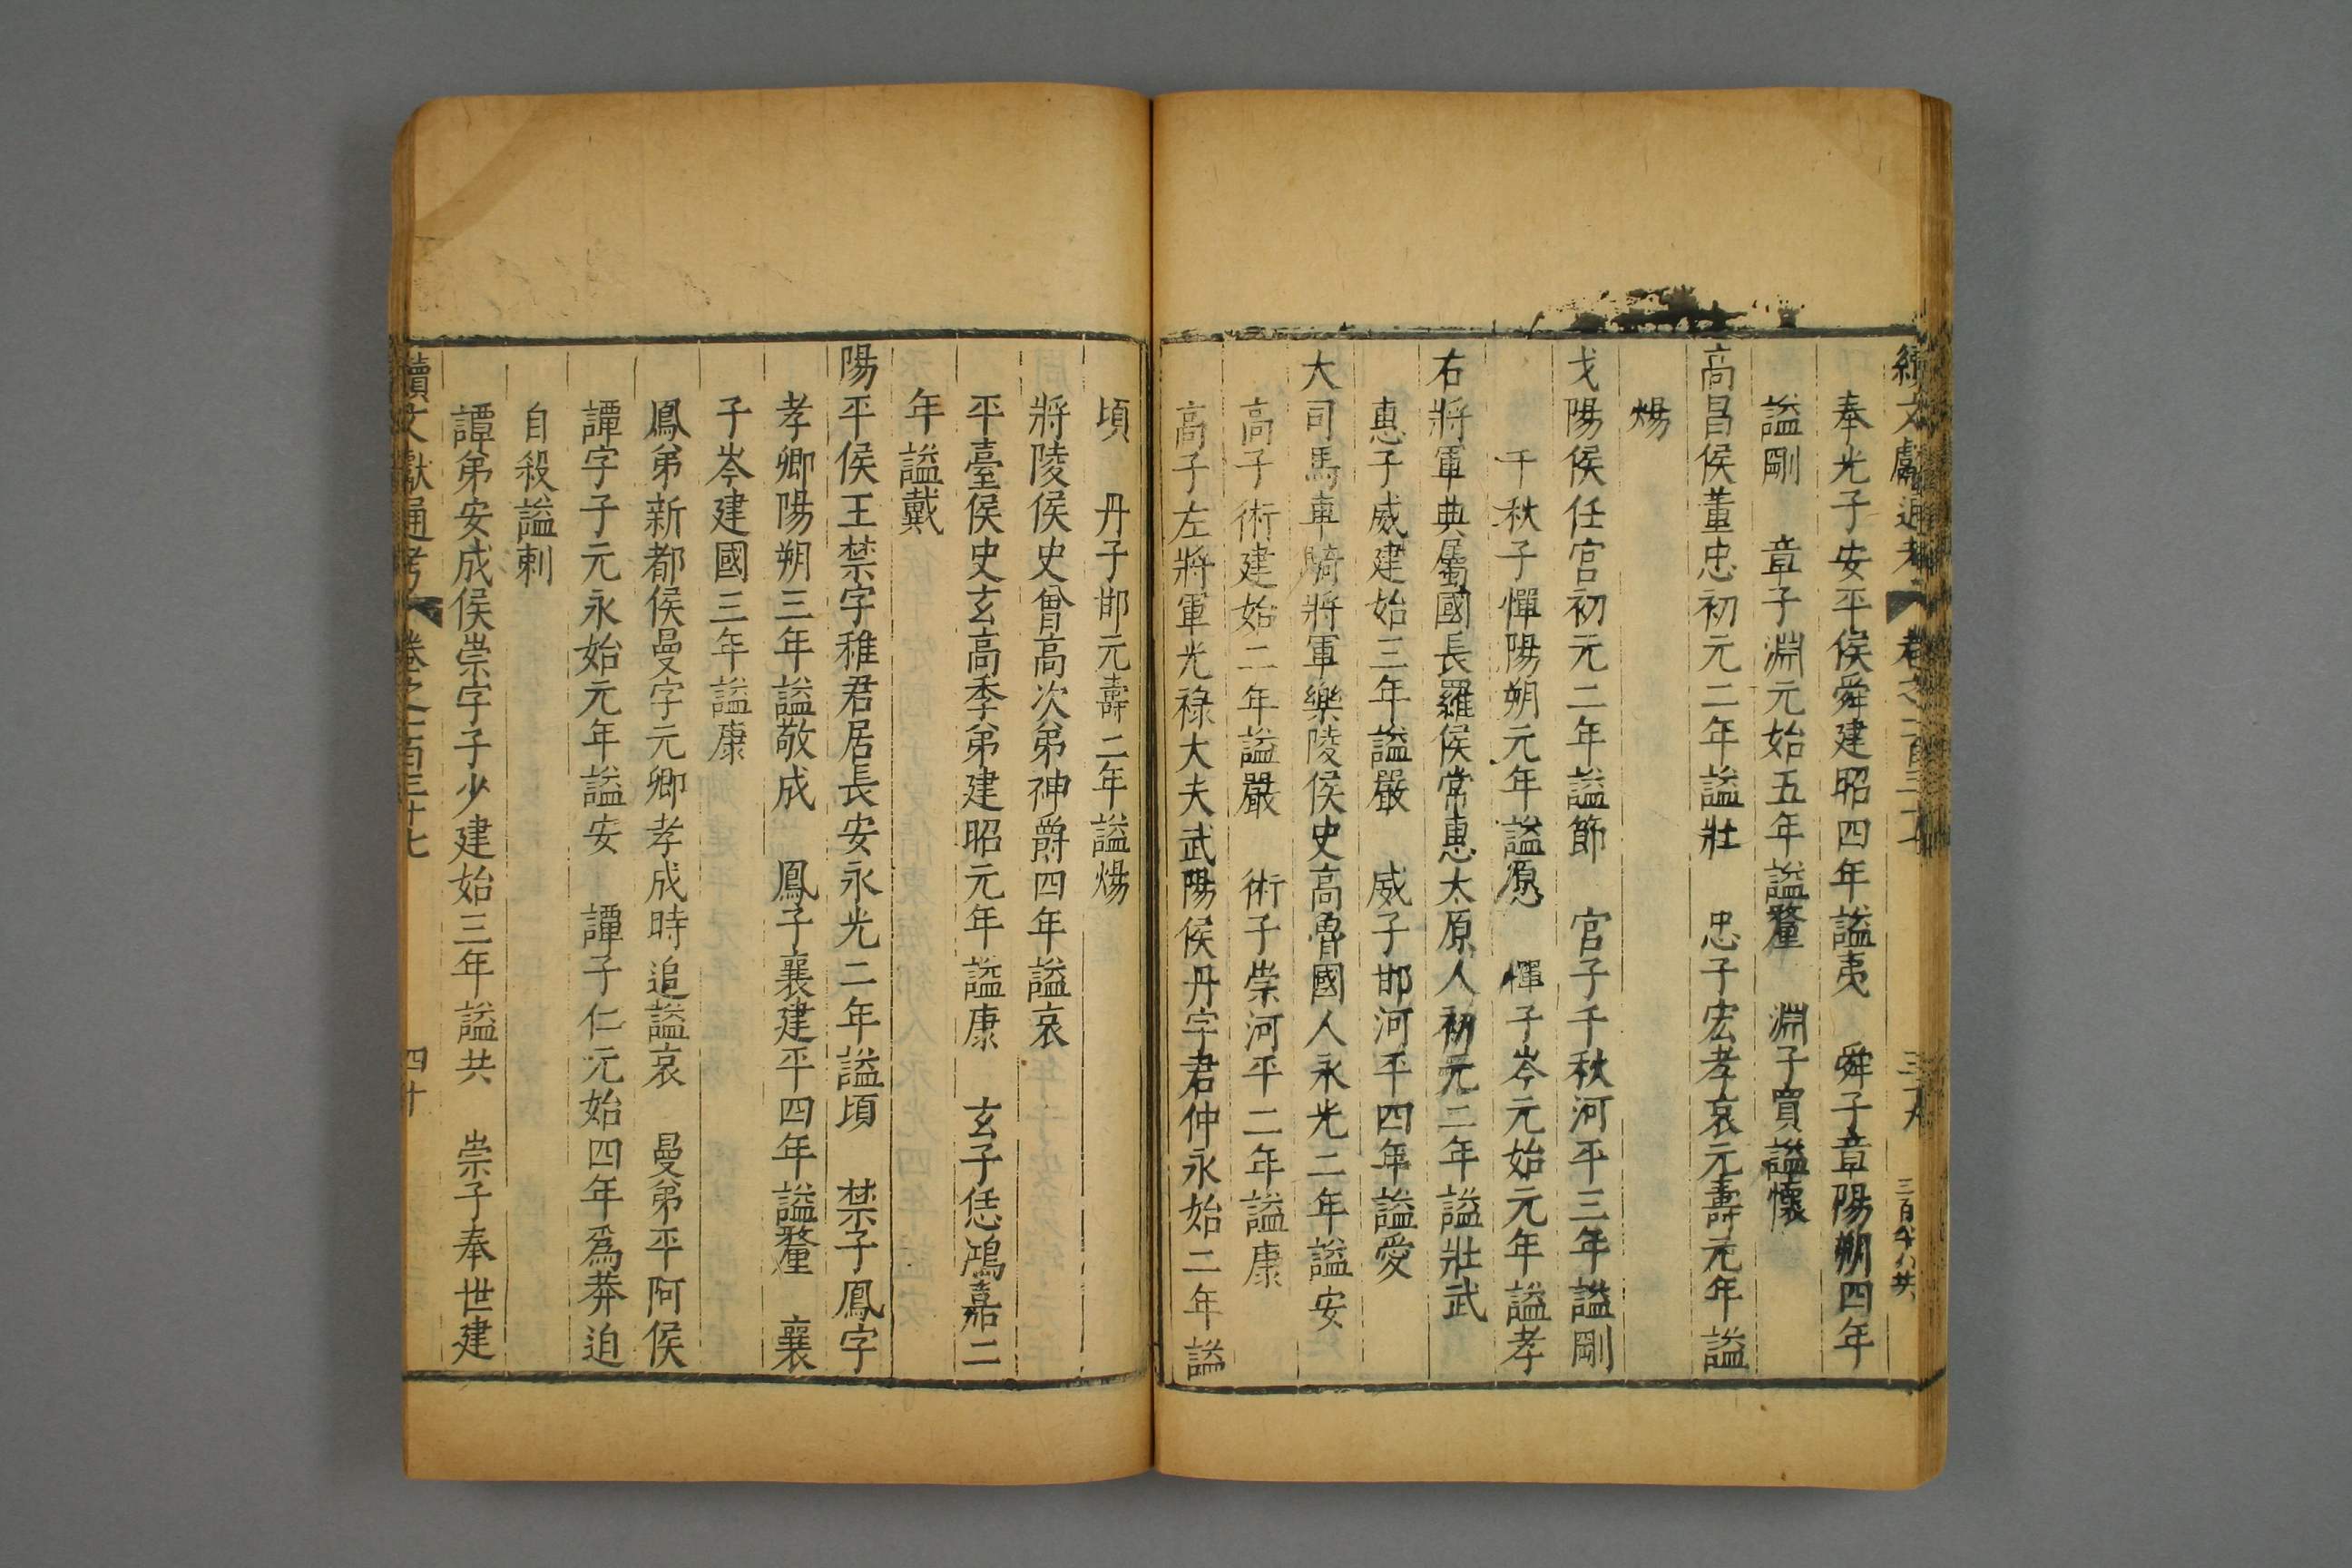 續文獻通考 卷之一百三十七
奉光子安平侯舜建昭四年謚夷 舜子章陽朔四年
謚剛 章子淵元始五年謚釐 淵子買謚懷
高昌侯董忠初元二年謚壯 忠子宏孝哀元壽元年謚
煬
戈陽侯任宫初元二年謚節 宫子千秋河平三年謚剛
千秋子惲陽朔元年謚愿 惲子岑元始元年謚孝
右將軍典屬國長羅侯常惠太原人初元二年謚壯武
惠子威建始三年謚嚴 威子邯河平四年謚愛
大司馬車騎將軍樂陵侯史高魯國人永光二年謚安
高子術建始二年謚嚴 術子崇河平二年謚康
高子左將軍光祿大夫武陽侯丹字君仲永始二年謚
頃 丹子邯元壽二年謚煬
將陵侯史曾高次弟神爵四年謚哀
平臺侯史玄高季弟建昭元年謚康 玄子恁鴻嘉二
年謚戴
陽平侯王禁字稚君居長安永光二年謚頃 禁子鳳字
孝卿陽朔三年謚敬成 鳳子襄建平四年謚釐 襄
子岑建國三年謚康
鳳弟新都侯曼字元卿孝成時追謚哀 曼弟平阿侯
譚字子元永始元年謚安 譚子仁元始四年爲莽迫
自殺謚刺
譚弟安成侯崇字子少建始三年謚共 崇子奉世建
續文獻通考 卷之一百三十七 四十